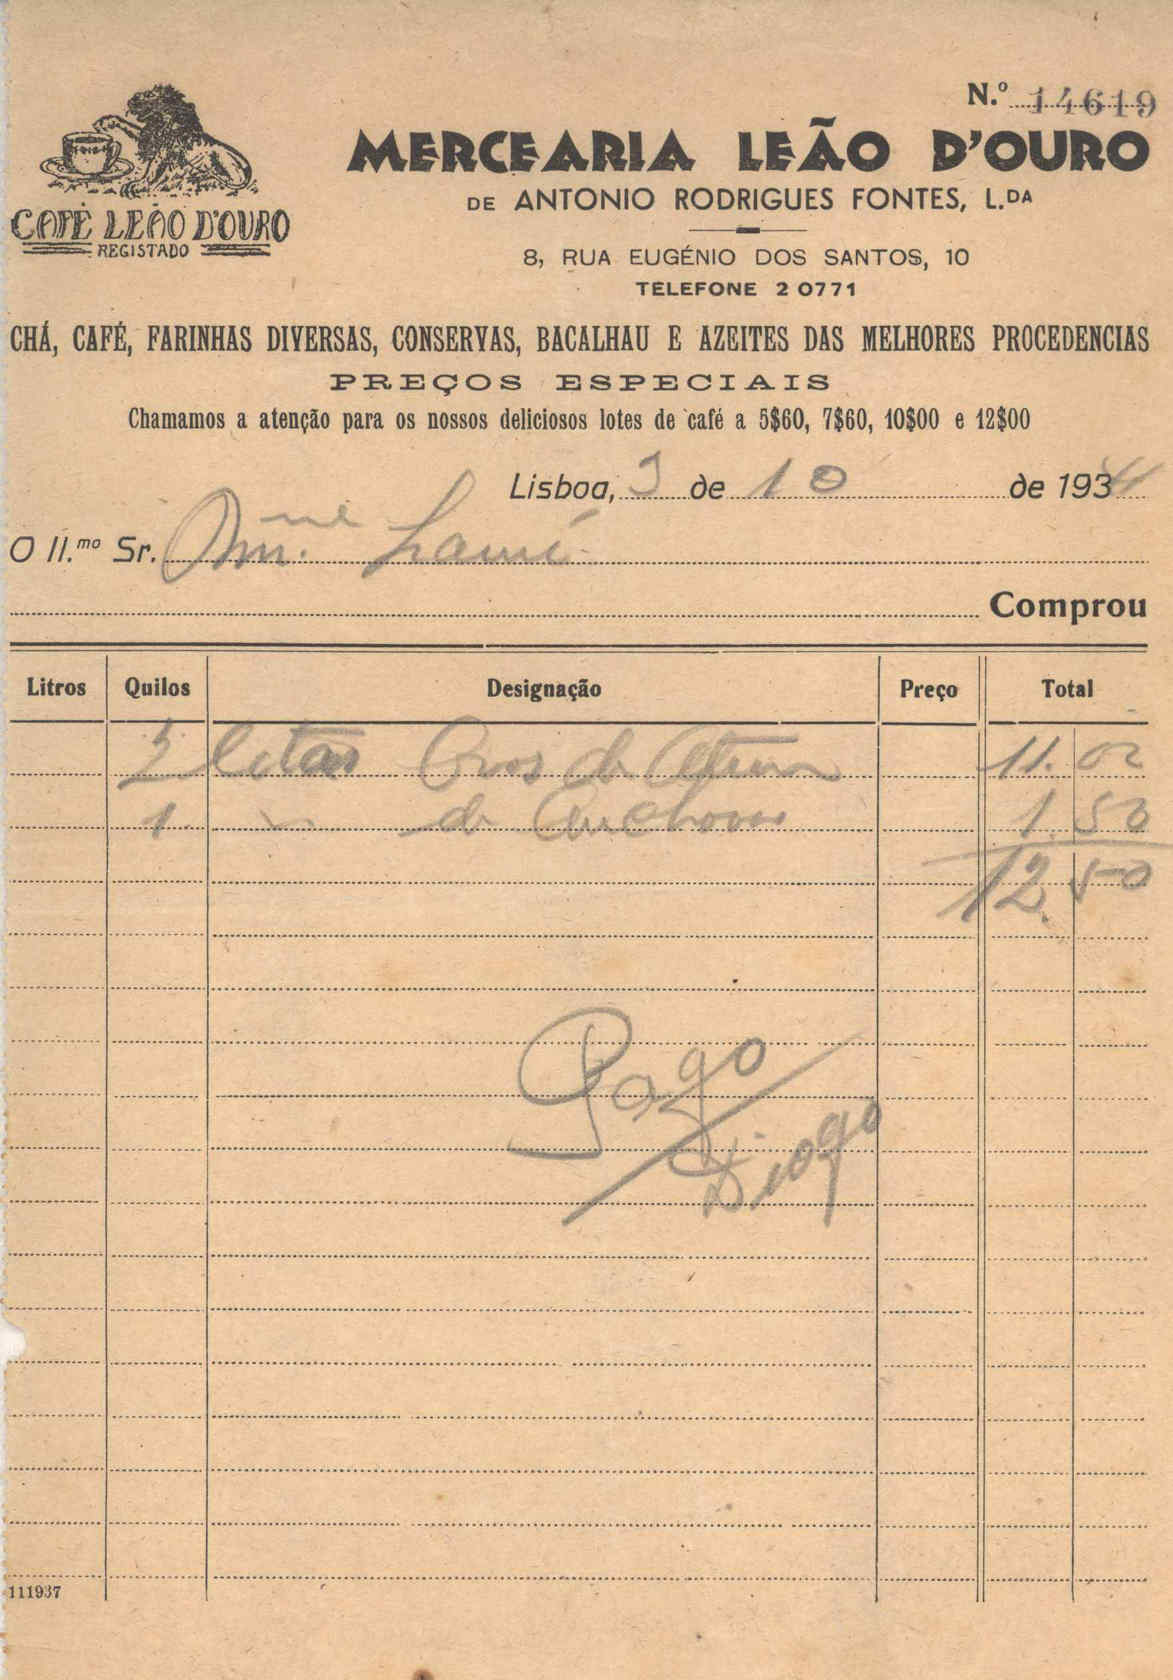 N.º 14619
MERCEARIA LEÃO D'OURO
DE ANTONIO RODRIGUES FONTES, L.DA
CAFÉ LEÃO D'OURO
REGISTADO
8, RUA EUGÉNIO DOS SANTOS, 10
TELEFONE 2 0771
CHÁ, CAFÉ, FARINHAS DIVERSAS, CONSERVAS, BACALHAU E AZEITES DAS MELHORES PROCEDENCIAS
PREÇOS ESPECIAIS
Chamamos a atenção para os nossos deliciosos lotes de café a 5$60, 7$60, 10$00 e 12$00
Lisboa, 3 de 10 de 193
O Il.mo Sr.
Comprou
Litros Quilos Designação Preço Total
latas de 11.00
1 de Anchovas 1.50
12.50
Pago
Diogo
111937